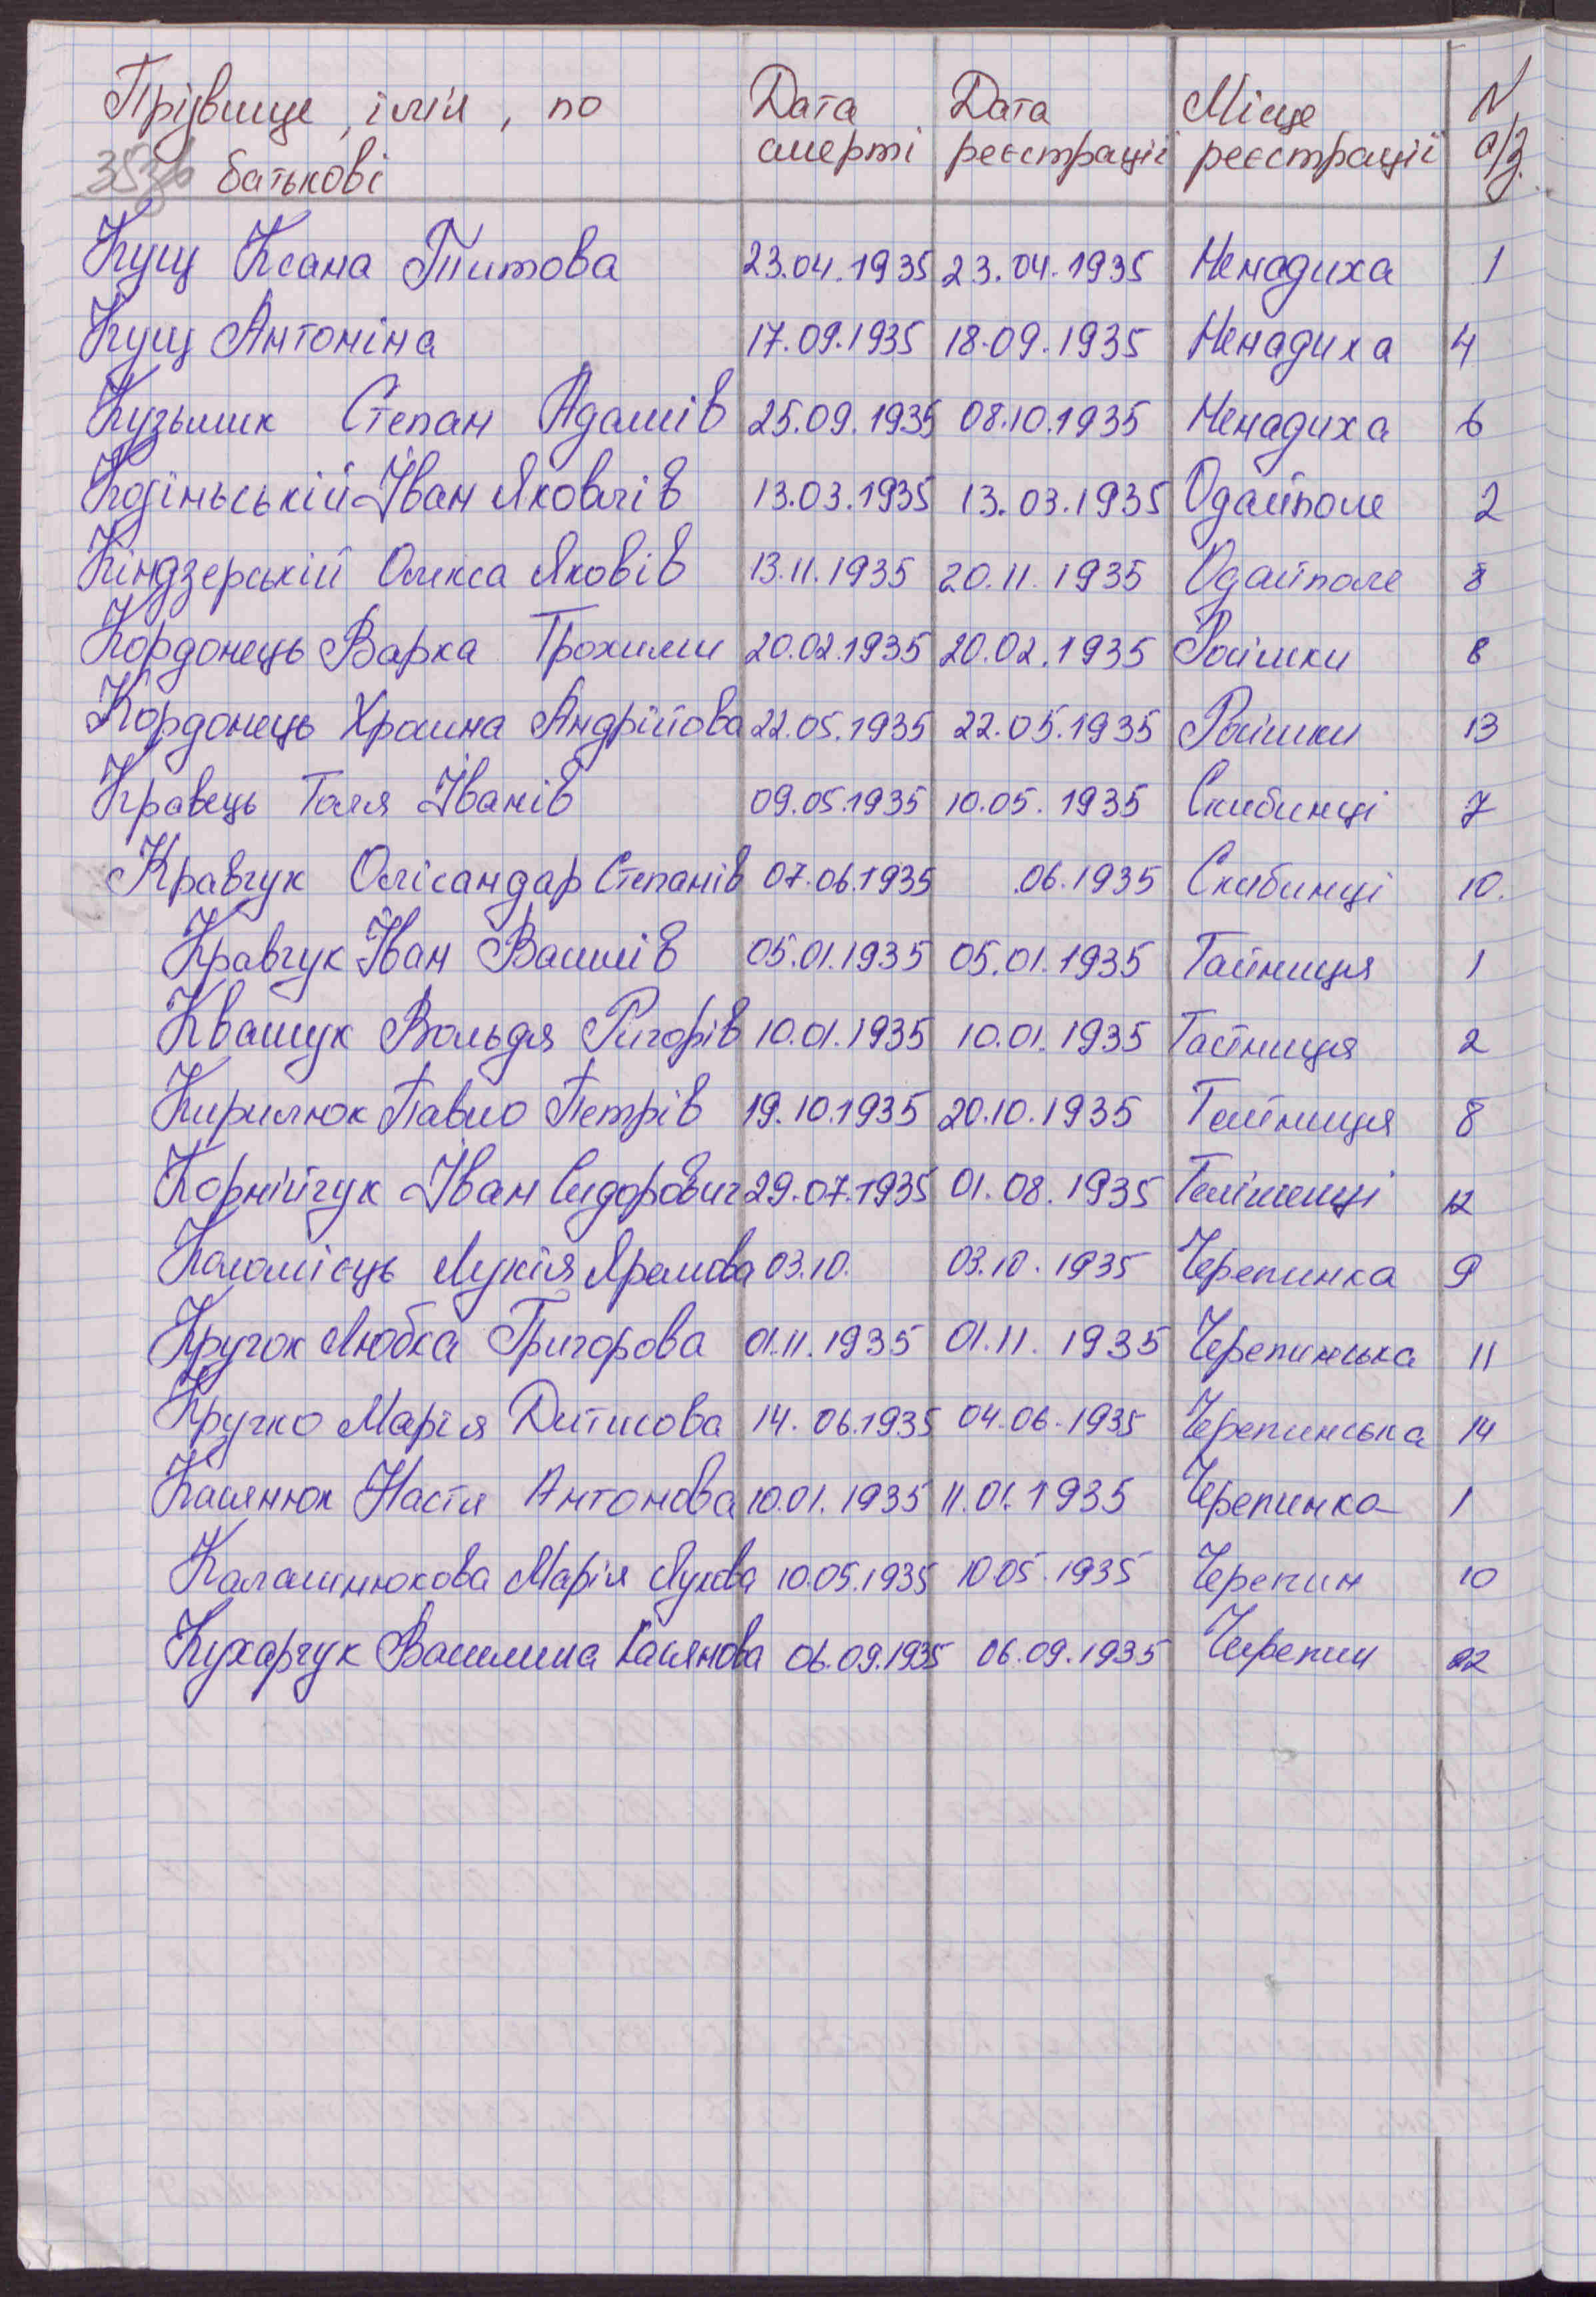 Прізвище, імя, по Дата Дата Місце N
353в батькові смерті реєстрації реєстрації а/з.
Кущ Ксана Титова 23.04.1935 23.04.1935 Ненадиха 1
Кущ Антоніна 17.09.1935 18.09.1935 Ненадиха 4
Кузьмик Степан Адамів 25.09.1935 08.10.1935 Ненадиха 6
Іван Яковлів 13.03.1935 13.03.1935 Одайполе 2
Кіндзерській Олекса Яковів 13.11.1935 20.11.1935 Одайполе 8
Кордонець Варка Трохими 20.02.1935 20.02.1935 Ройшки 8
Кордонець Андрійова 22.05.1935 22.05.1935 Ройшки 13
Кравець Толя Іванів 09.05.1935 10.05.1935 Скибинці 7
Кравчук Олісандар Степанів 07.06.1935 .06.1935 Скибинці 10.
Кравчук Іван 05.01.1935 05.01.1935 Тайниця 1
Квашук Вольдя Ригорів 10.01.1935 10.01.1935 Тайниця 2
Кирилюк Павло Петрів 19.10.1935 20.10.1935 Тайниця 8
Корнійчук Іван Сидорович 29.07.1935 01.08.1935 12
Коломієць Лукія Яремова 03.10. 03.10.1935 Черепинка 9
Кручок Любка Григорова 01.11.1935 01.11.1935 Черепинська 11
Кручко Марія 14.06.1935 04.06.1935 Черепинська 14
Касянюк Настя Антонова 10.01.1935 11.01.1935 Черепинка 1
Калашнюкова Марія Лукова 10.05.1935 10.05.1935 Черепин 10
Кухарчук Василина Касянова 06.09.1935 06.09.1935 Черепин 22